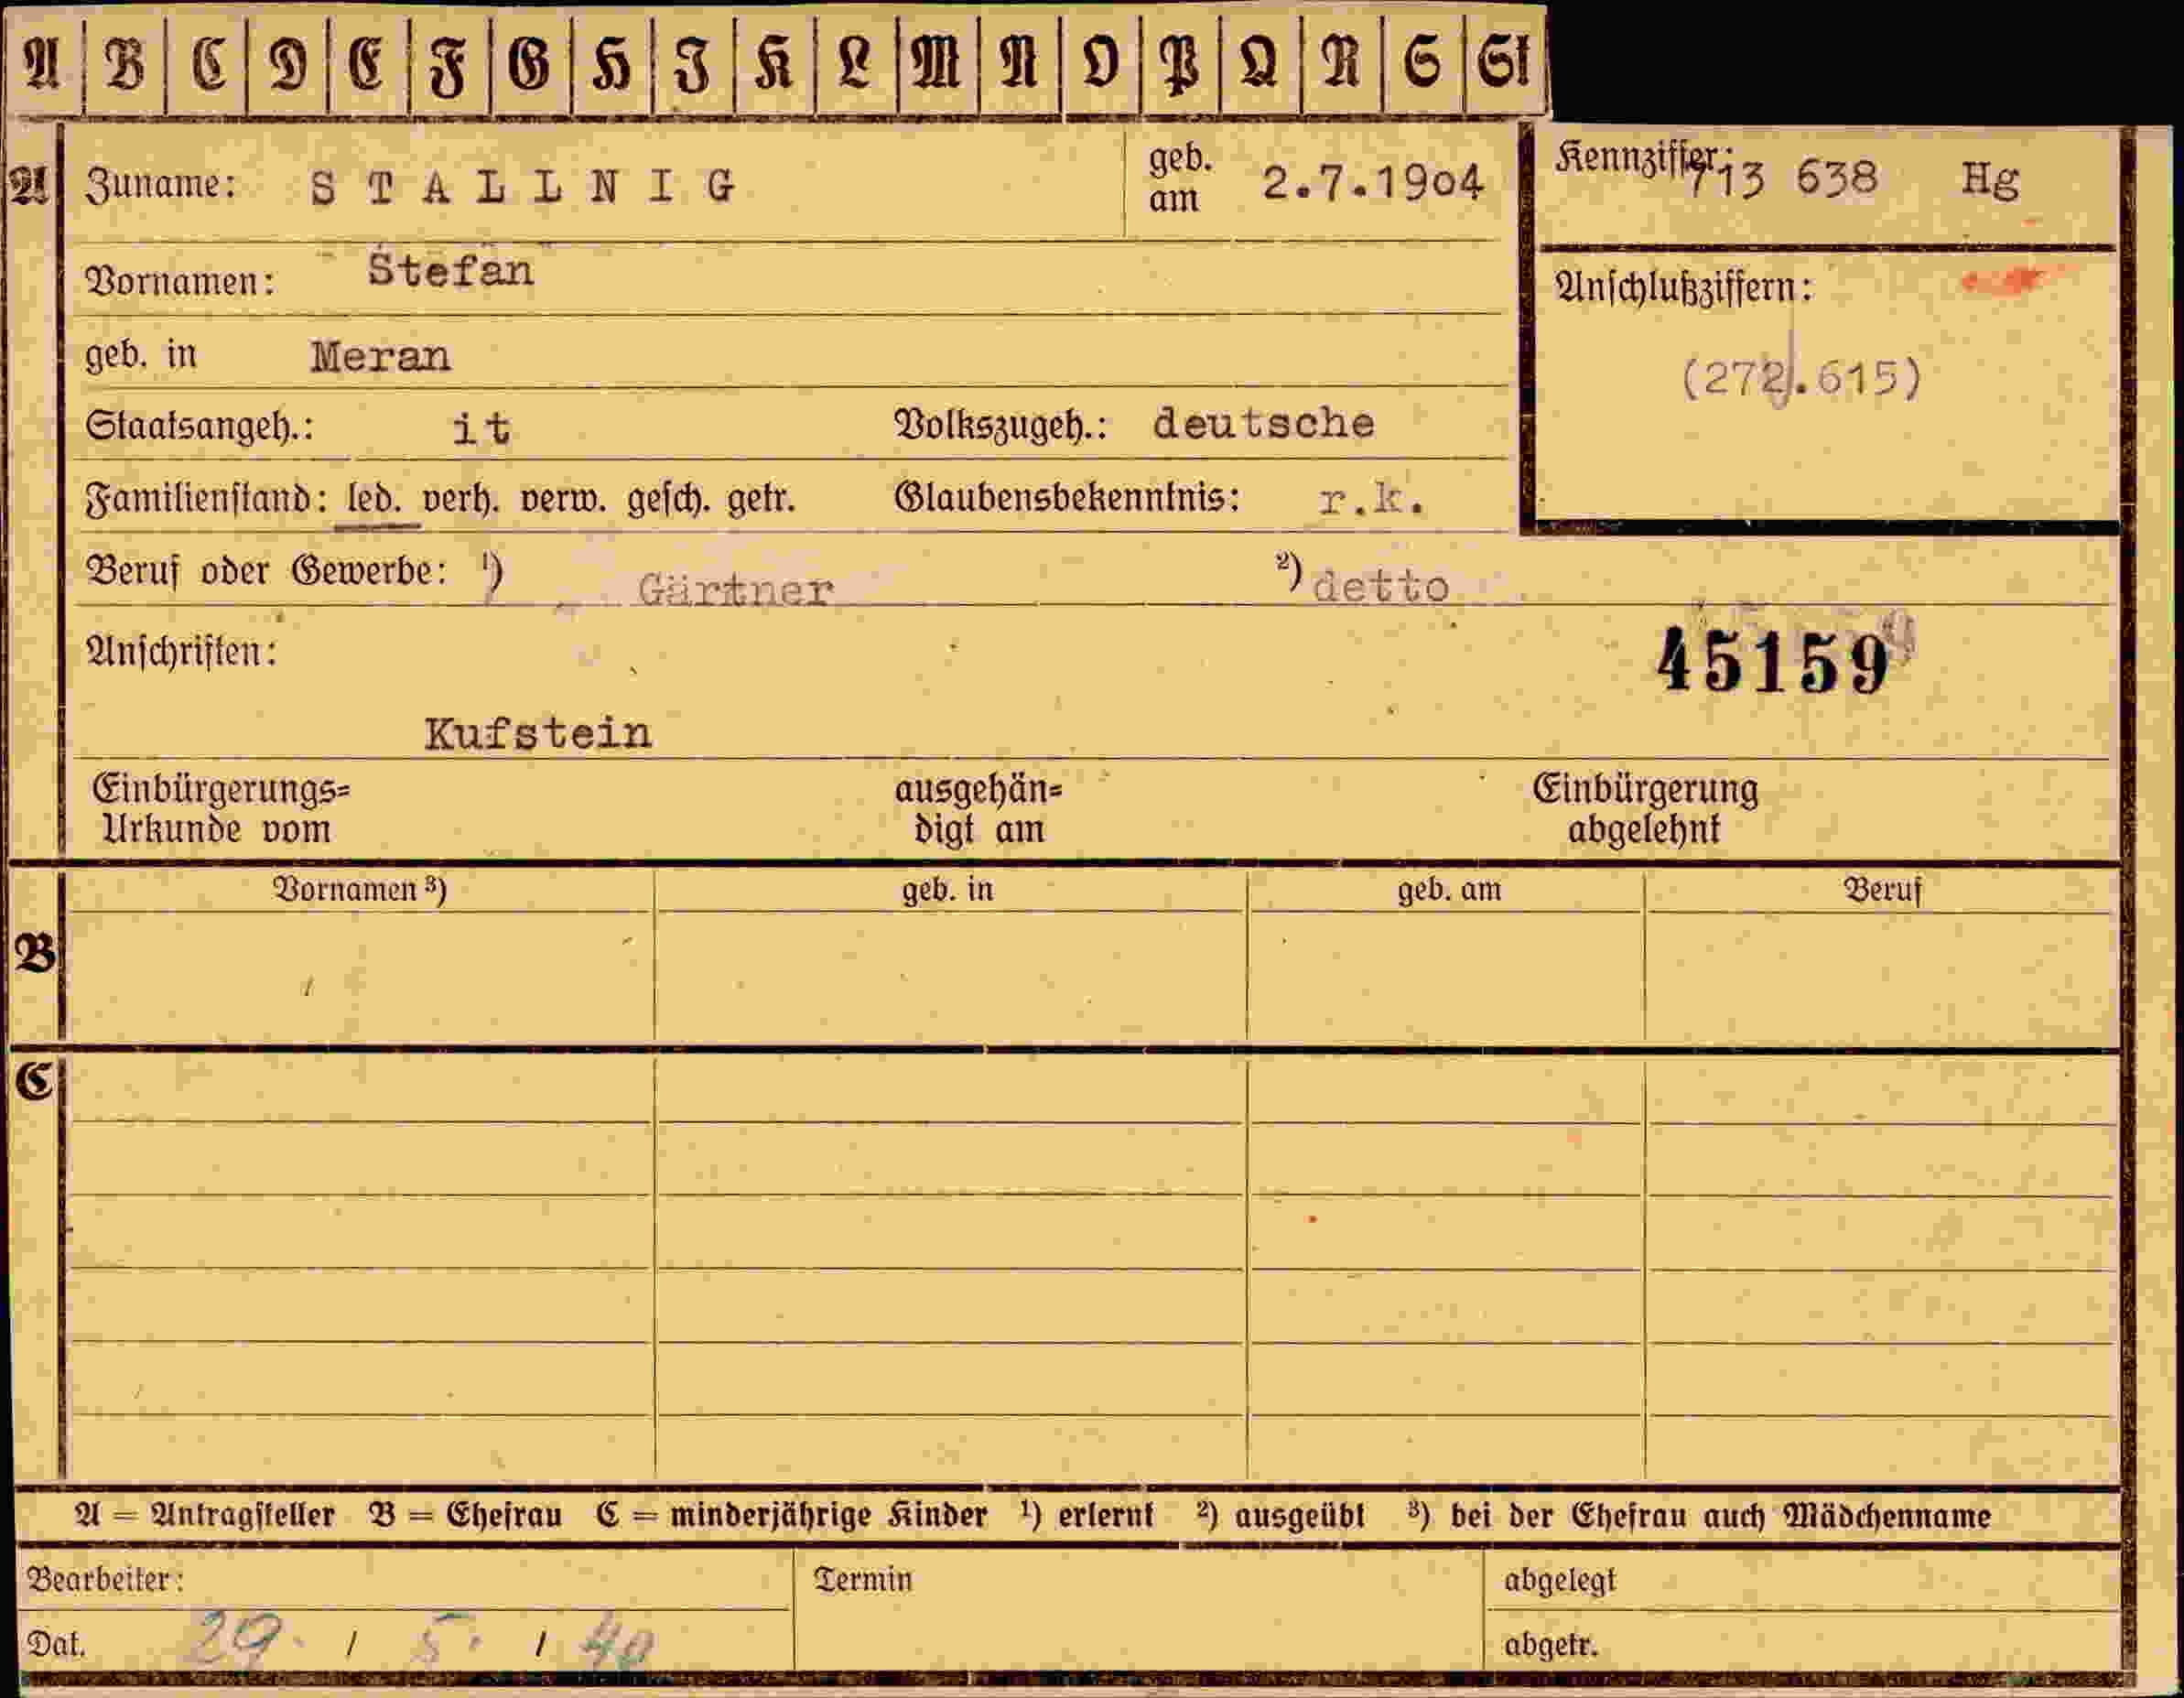 A B C D E F G H I K L M N O P Q R S St
A Zuname: STALLNIG geb. am 2.7.1904 Kennziffer: 713 638 Hg
Vornamen: Stefan Anschlußziffern:
geb. in Meran (272.615)
Staatsangeh.: it Volkszugeh.: deutsche
Familienstand: led. verh. verw. gesch. getr. Glaubensbekenntnis: r.k.
Beruf oder Gewerbe: ¹) Gärtner ²) detto
Anschriften: 45159
Kufstein
Einbürgerungs= ausgehän= Einbürgerung
Urkunde vom digt am abgelehnt
Vornamen ³) geb. in geb. am Beruf
B
C
A = Antragsteller B = Ehefrau C = minderjährige Kinder ¹) erlernt ²) ausgeübt ³) bei der Ehefrau auch Mädchenname
Bearbeiter: Termin abgelegt
Dat. 29. / 5. / 40 abgetr.